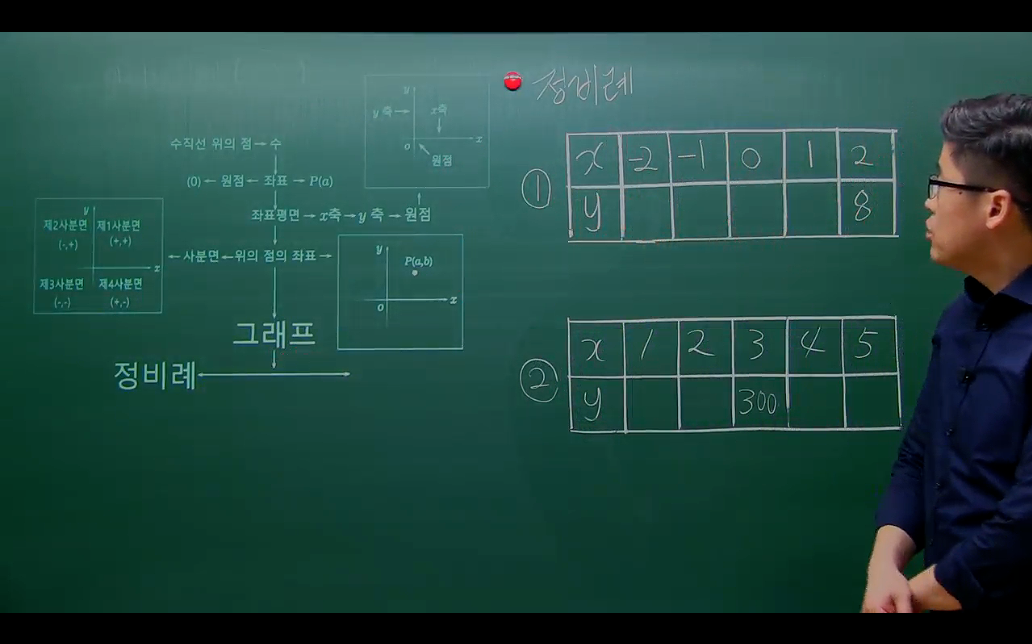 수직선 위의 점→수
(0) ← 원점 ← 좌표 → P(a)
좌표평면→x축→y 축→원점
←사분면←위의 점의 좌표→
그래프
정비례
y
제2사분면 제1사분면
(-,+) (+,+)
x
제3사분면 제4사분면
(-,-) (+,-)
y
y 축→ x축
x
O
원점
y
P(a,b)
O x
정비례
①
x -2 -1 0 1 2
y 8
②
x 1 2 3 4 5
y 300